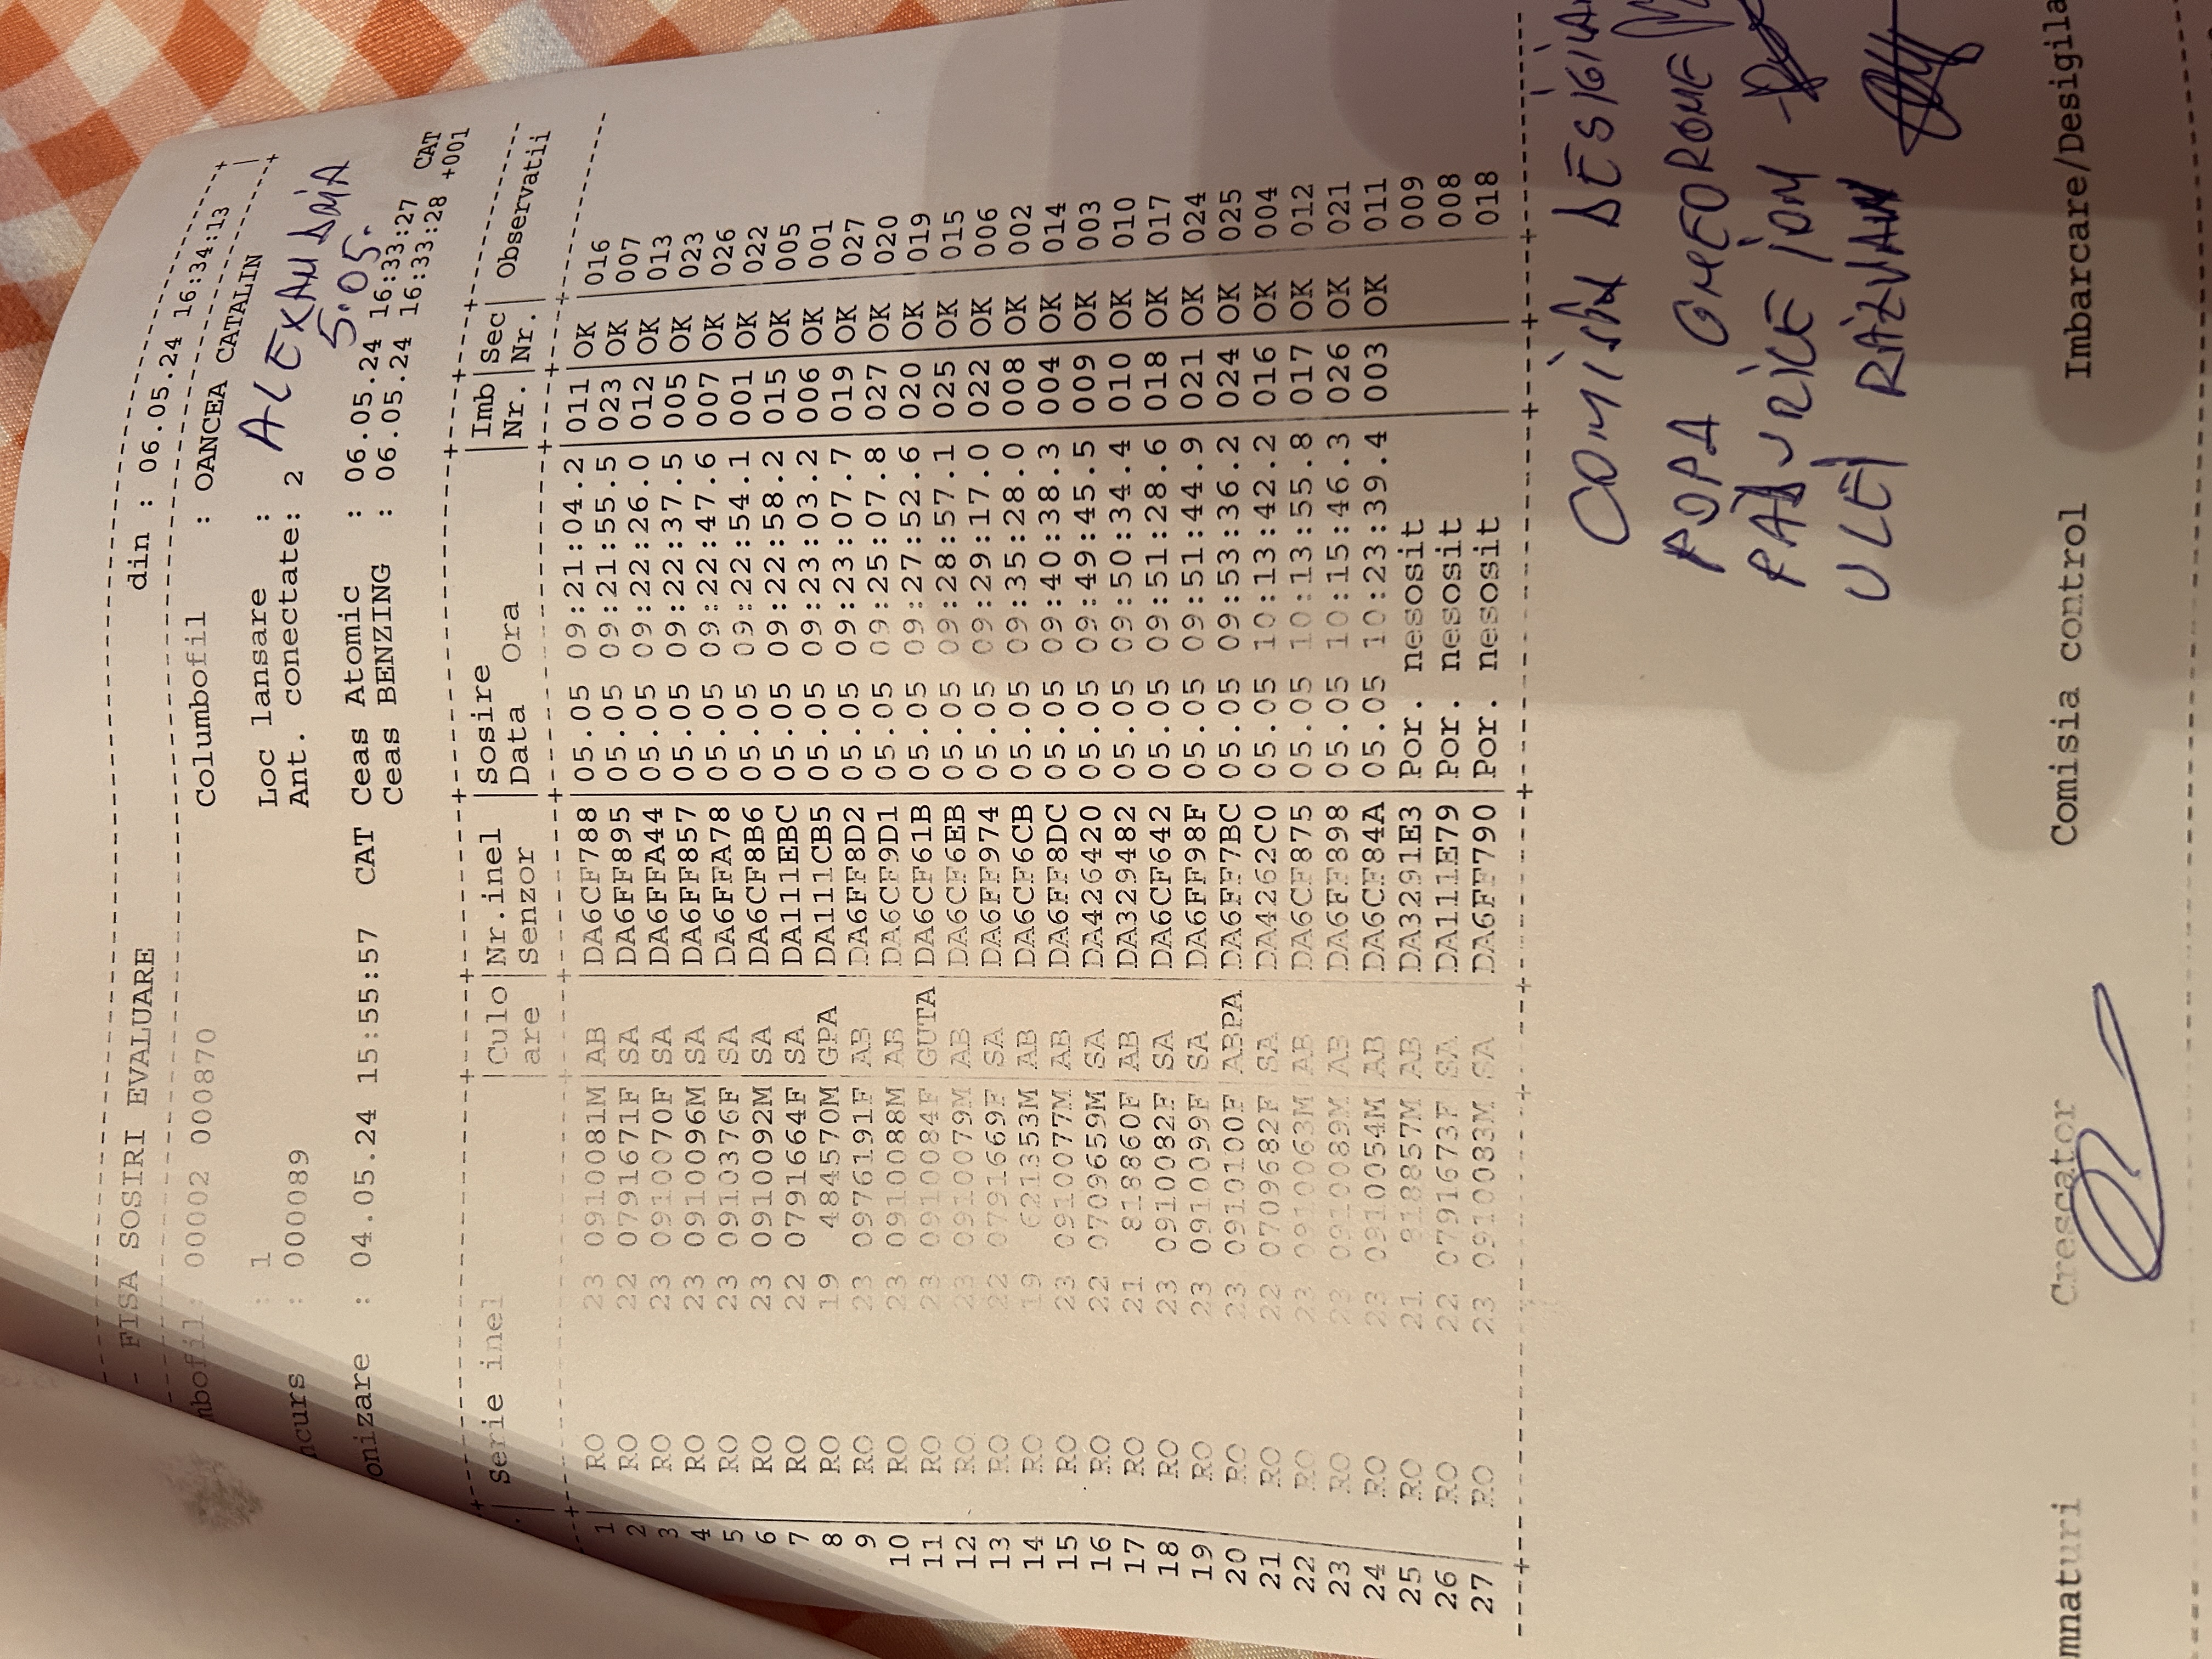 - FISA SOSIRI EVALUARE din : 06.05.24 16:34:13
mbofil: 00002 000870 Columbofil : OANCEA CATALIN
ncurs : 1 Loc lansare : ALEXANDRIA
: 000089 Ant. conectate: 2 5.05.
onizare : 04.05.24 15:55:57 CAT Ceas Atomic : 06.05.24 16:33:27 CAT
Ceas BENZING : 06.05.24 16:33:28 +001
Serie inel | Culo | Nr.inel | Sosire | Imb | Sec | Observatii
are | Senzor | Data Ora | Nr. | Nr. |
1 RO 23 0910081M AB DA6CF788 05.05 09:21:04.2 011 OK 016
2 RO 22 0791671F SA DA6FF895 05.05 09:21:55.5 023 OK 007
3 RO 23 0910070F SA DA6FFA44 05.05 09:22:26.0 012 OK 013
4 RO 23 0910096M SA DA6FF857 05.05 09:22:37.5 005 OK 023
5 RO 23 0910376F SA DA6FFA78 05.05 09:22:47.6 007 OK 026
6 RO 23 0910092M SA DA6CF8B6 05.05 09:22:54.1 001 OK 022
7 RO 22 0791664F SA DA111EBC 05.05 09:22:58.2 015 OK 005
8 RO 19 484570M GPA DA111CB5 05.05 09:23:03.2 006 OK 001
9 RO 23 0976191F AB DA6FF8D2 05.05 09:23:07.7 019 OK 027
10 RO 23 0910088M AB DA6CF9D1 05.05 09:25:07.8 027 OK 020
11 RO 23 0910084F GUTA DA6CF61B 05.05 09:27:52.6 020 OK 019
12 RO 23 0910079M AB DA6CF6EB 05.05 09:28:57.1 025 OK 015
13 RO 22 0791669F SA DA6FF974 05.05 09:29:17.0 022 OK 006
14 RO 19 621353M AB DA6CF6CB 05.05 09:35:28.0 008 OK 002
15 RO 23 0910077M AB DA6FF8DC 05.05 09:40:38.3 004 OK 014
16 RO 22 0709659M SA DA426420 05.05 09:49:45.5 009 OK 003
17 RO 21 818860F AB DA329482 05.05 09:50:34.4 010 OK 010
18 RO 23 0910082F SA DA6CF642 05.05 09:51:28.6 018 OK 017
19 RO 23 0910099F SA DA6FF98F 05.05 09:51:44.9 021 OK 024
20 RO 23 0910100F ABPA DA6FF7BC 05.05 09:53:36.2 024 OK 025
21 RO 22 0709682F SA DA4262C0 05.05 10:13:42.2 016 OK 004
22 RO 23 0910063M AB DA6CF875 05.05 10:13:55.8 017 OK 012
23 RO 23 0910089M AB DA6FF898 05.05 10:15:46.3 026 OK 021
24 RO 23 0910054M AB DA6CF84A 05.05 10:23:39.4 003 OK 011
25 RO 21 818857M AB DA3291E3 Por. nesosit 009
26 RO 22 0791673F SA DA111E79 Por. nesosit 008
27 RO 23 0910083M SA DA6FF790 Por. nesosit 018
POPA
ION
ULEI RAZVAN
mnaturi Crescator Comisia control Imbarcare/Desigila